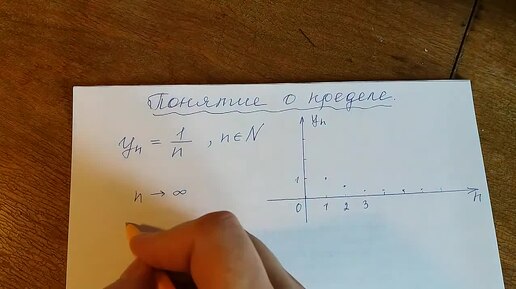 Понятие о пределе.
yₙ = 1/n , n ∈ N
n → ∞
yₙ
1
0 1 2 3 n